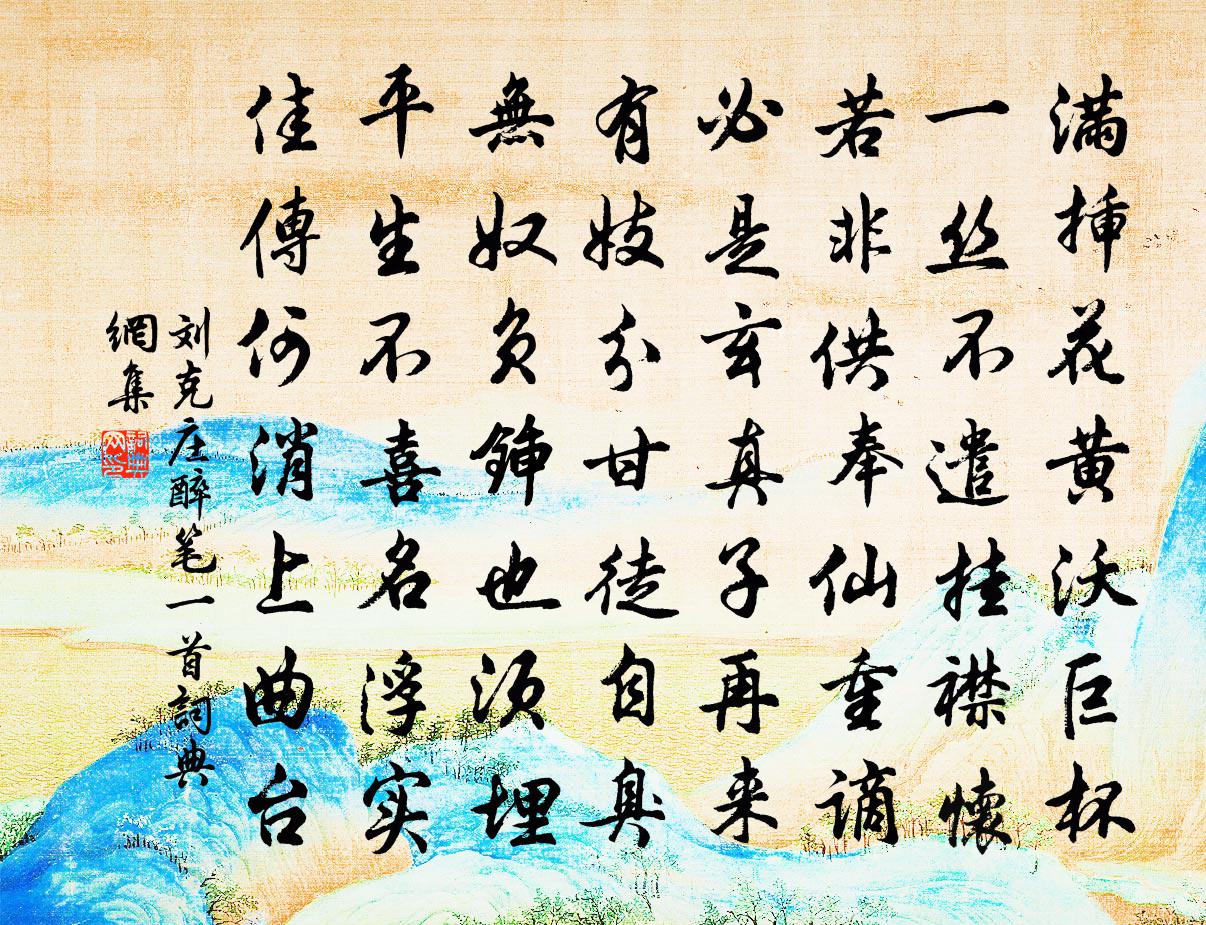 滿挿花黄沃巨杯
一丝不遣挂襟懷
若非供奉仙重谪
必是玄真子再来
有妓分甘徒自臭
無奴负鍤也须埋
平生不喜名浮实
佳傳何消上曲台
刘克庄醉笔一首詞典
網集